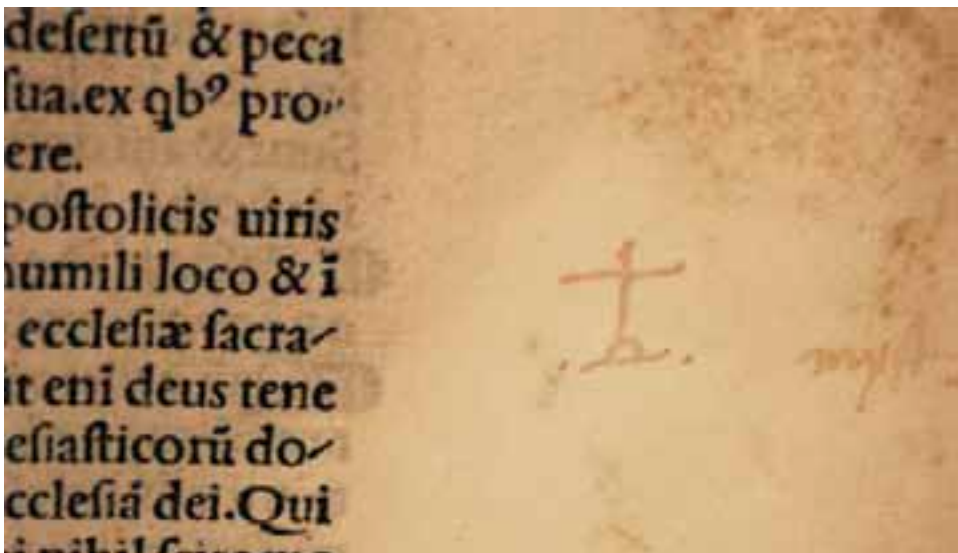 deſertū & peca
ſua.ex qbꝰ pro⸗
ere.
poſtolicis uiris
humili loco & ī
eccleſiæ ſacra⸗
it enī deus tene
eſiaſticorū do⸗
ccleſiā dei.Qui